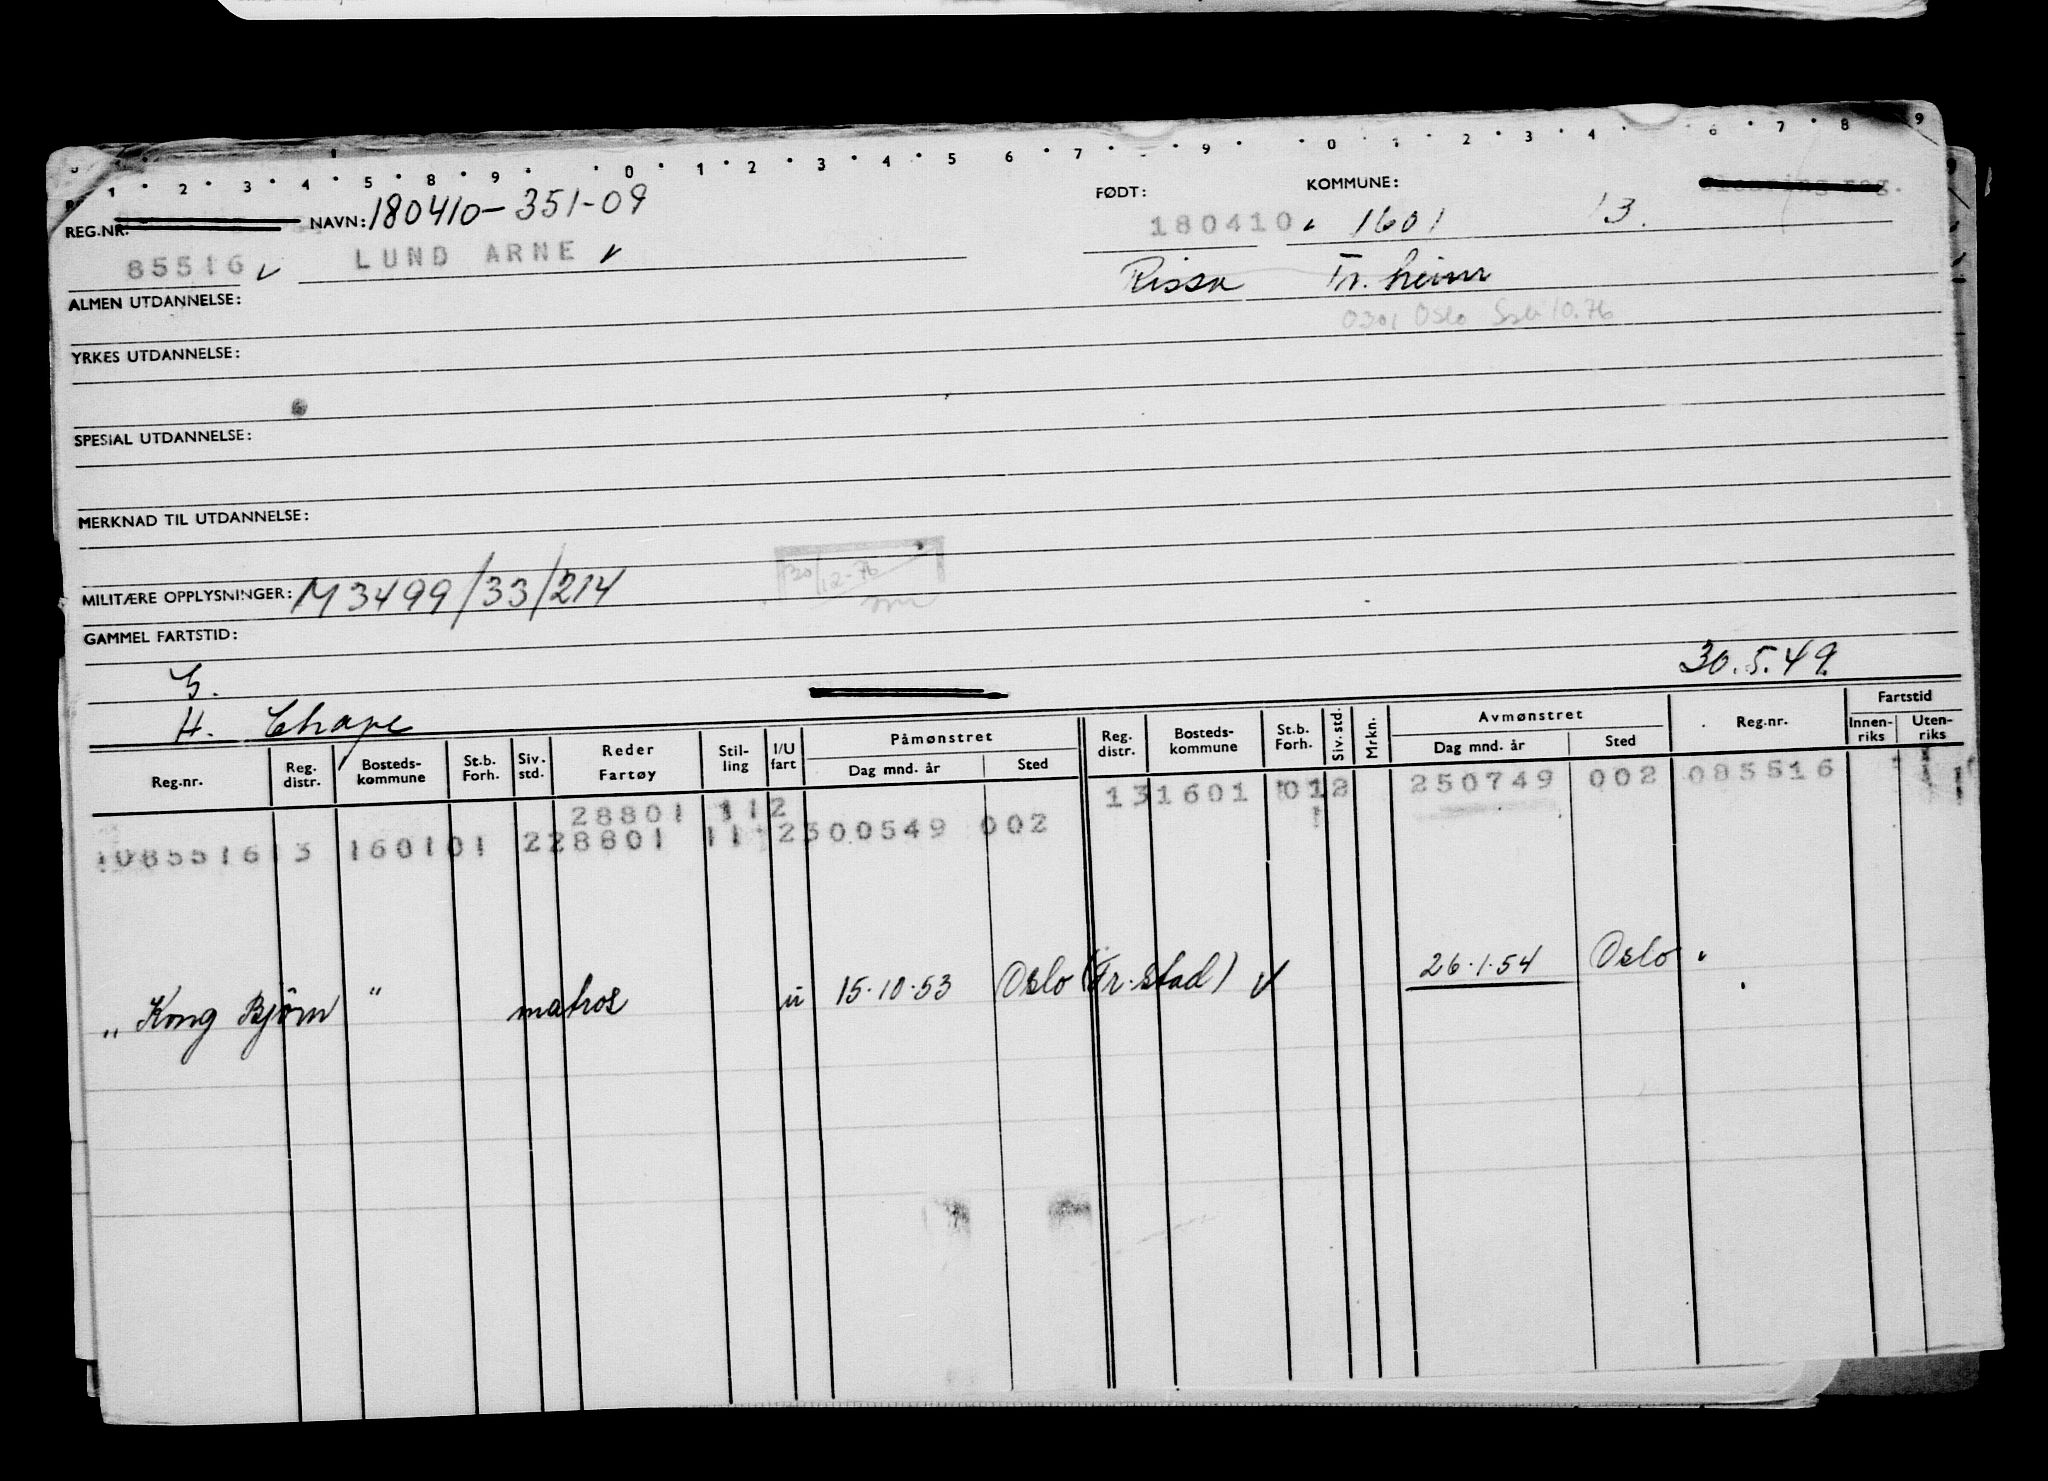 1 · 2 · 3 · 4 · 5 · 8 · 9 · · 0 · 1 · 2 · 3 · 4 · 5 6 · 7 · · 9 · 0 · 1 · 2 · 3 · 4 · 6 · 7 · 8 · 9
REG.NR. NAVN: 180410-351-09 FØDT: KOMMUNE:
85516 LUND ARNE 180410 1601 13.
Rissa Tr.heim
ALMEN UTDANNELSE:
0301 Oslo 10.76
YRKES UTDANNELSE:
SPESIAL UTDANNELSE:
MERKNAD TIL UTDANNELSE:
30/12-76
MILITÆRE OPPLYSNINGER: M3499/33/214
GAMMEL FARTSTID:
G. 30.5.49
H. Chape
Reg.nr. Reg. distr. Bosteds-kommune St.b. Forh. Siv. std. Reder Fartøy Stil-ling I/U fart Påmønstret Dag mnd. år Sted Reg. distr. Bosteds-kommune St.b. Forh. Siv. std. Mrkn. Avmønstret Dag mnd. år Sted Reg.nr. Fartstid Innen-riks Uten-riks
28801 112 131601 012 250749 002 085516
108551613 160101 228801 11 2300549 002
„ Kong Bjørn " matros u 15.10.53 Oslo (Fr.stad) 26.1.54 Oslo